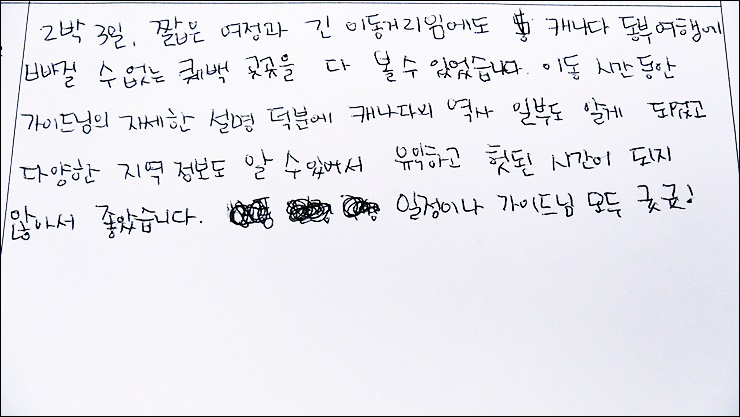 2박 3일, 짧은 여정과 긴 이동거리임에도 캐나다 동부여행에
빠질 수 없는 퀘백 곳곳을 다 볼 수 있었습니다. 이동 시간 동안
가이드님의 자세한 설명 덕분에 캐나다의 역사 일부도 알게 되었고
다양한 지역 정보도 알 수 있어서 유익하고 헛된 시간이 되지
않아서 좋았습니다. 일정이나 가이드님 모두 굿굿!